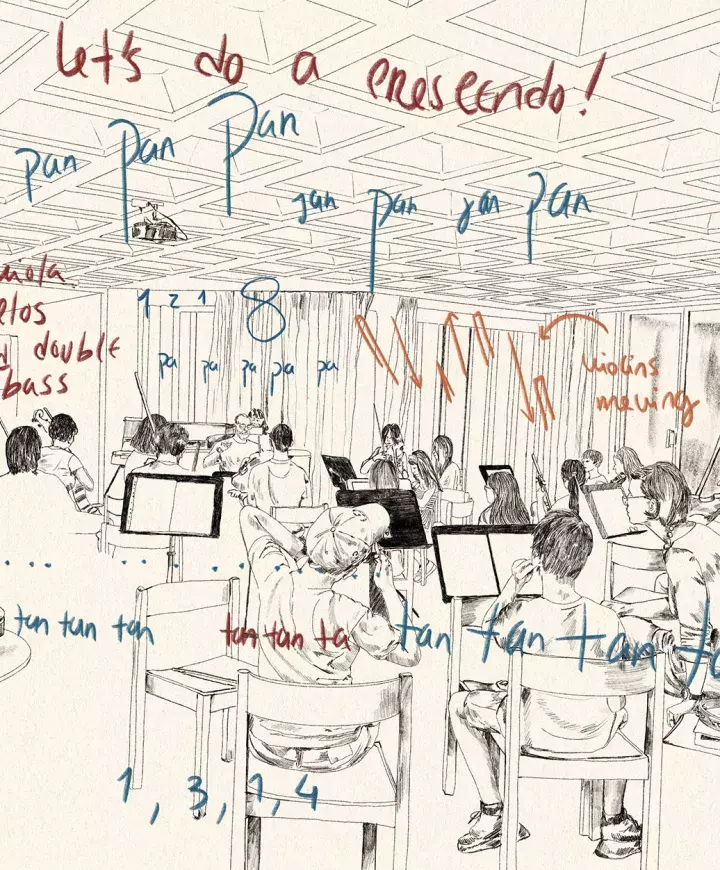 let's do a crescendo!
pan pan pan
yan pan yan pan
viola
double
bass
1 2 1 8
pa pa pa pa pa
violins
moving
tan tan tan tan tan ta tan tan tan ta
1, 3, 1, 4